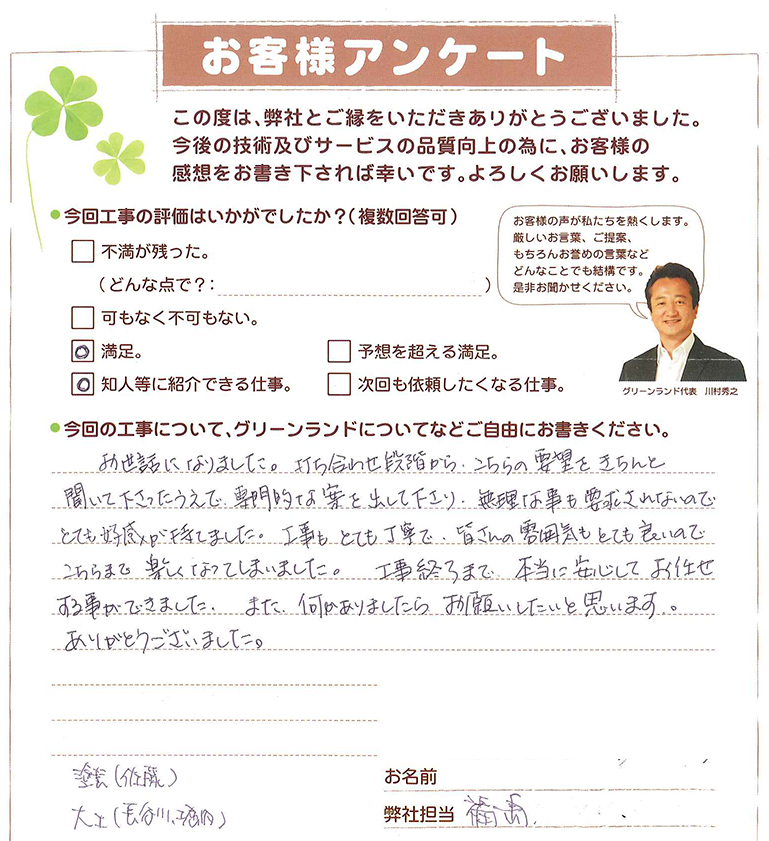 お客様アンケート
この度は、弊社とご縁をいただきありがとうございました。
今後の技術及びサービスの品質向上の為に、お客様の
感想をお書き下されば幸いです。よろしくお願いします。
今回工事の評価はいかがでしたか?(複数回答可)
不満が残った。
(どんな点で?: )
可もなく不可もない。
満足。
予想を超える満足。
知人等に紹介できる仕事。
次回も依頼したくなる仕事。
お客様の声が私たちを熱くします。
厳しいお言葉、ご提案、
もちろんお誉めの言葉など
どんなことでも結構です。
是非お聞かせください。
グリーンランド代表 川村秀之
今回の工事について、グリーンランドについてなどご自由にお書きください。
お世話になりました。打ち合わせ段階から、こちらの要望をきちんと
聞いて下さったうえで、専門的な案を出して下さり、無理な事も要求されないので
とても好感が持てました。工事もとても丁寧で、皆さんの雰囲気もとても良いので
こちらまで楽しくなってしまいました。 工事終了まで、本当に安心してお任せ
する事ができました。 また、何かありましたらお願いしたいと思います。
ありがとうございました。
塗装(佐藤)
大工(長谷川、堀内)
お名前
弊社担当